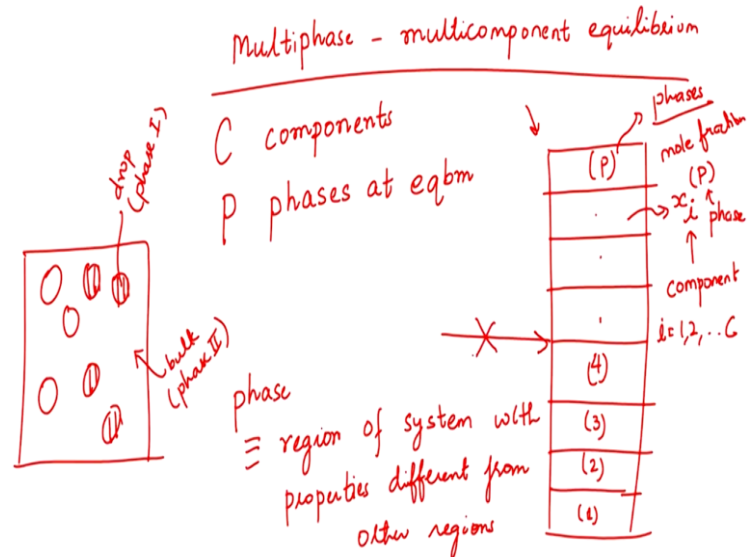 Multiphase - multicomponent equilibrium
C components
P phases at eqbm
drop
(phase I)
bulk
(phase II)
phase
≡ region of system with
properties different from
other regions
phases
mole fraction
(P)
(P)
x i
phase
component
i=1,2,..C
(4)
(3)
(2)
(1)